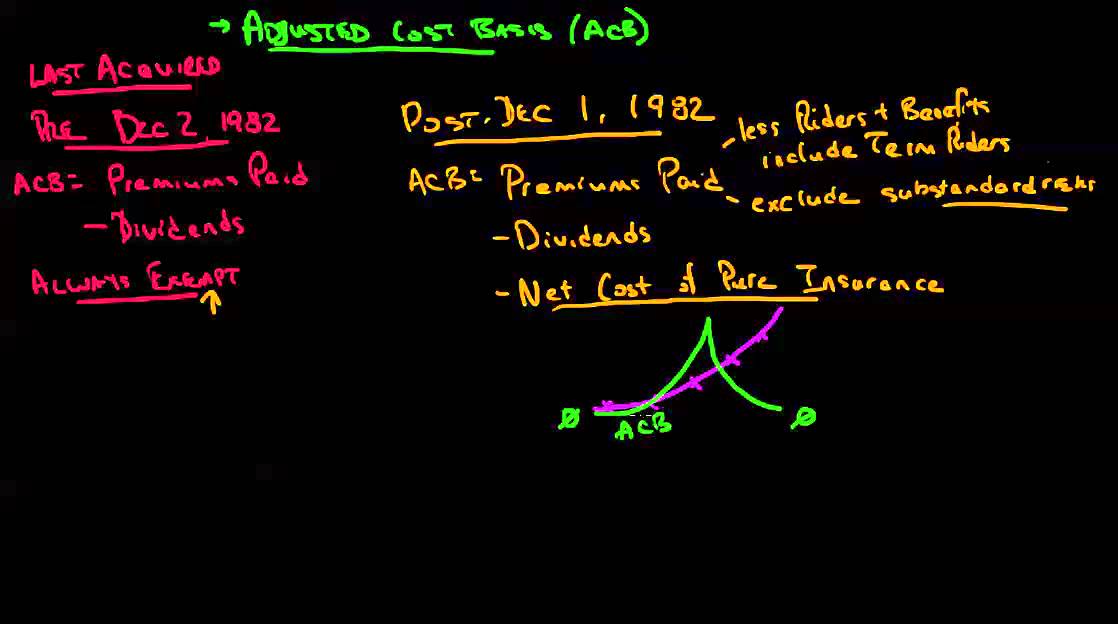 → ADJUSTED COST BASIS (ACB)
LAST ACQUIRED
PRE DEC 2, 1982
ACB = Premiums Paid
- Dividends
ALWAYS EXEMPT
POST. DEC 1, 1982
ACB = Premiums Paid
- less Riders + Benefits
include Term Riders
- exclude substandard risks
- Dividends
- Net Cost of Pure Insurance
Ø ACB Ø